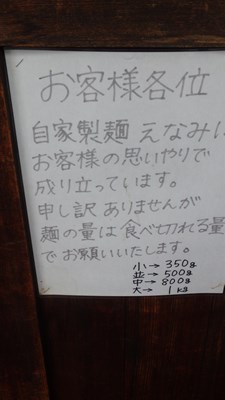 お客様各位
自家製麺 えなみは
お客様の思いやりで
成り立っています。
申し訳ありませんが
麺の量は食べ切れる量
でお願いいたします。
小→350g
並→500g
中→800g
大→1kg